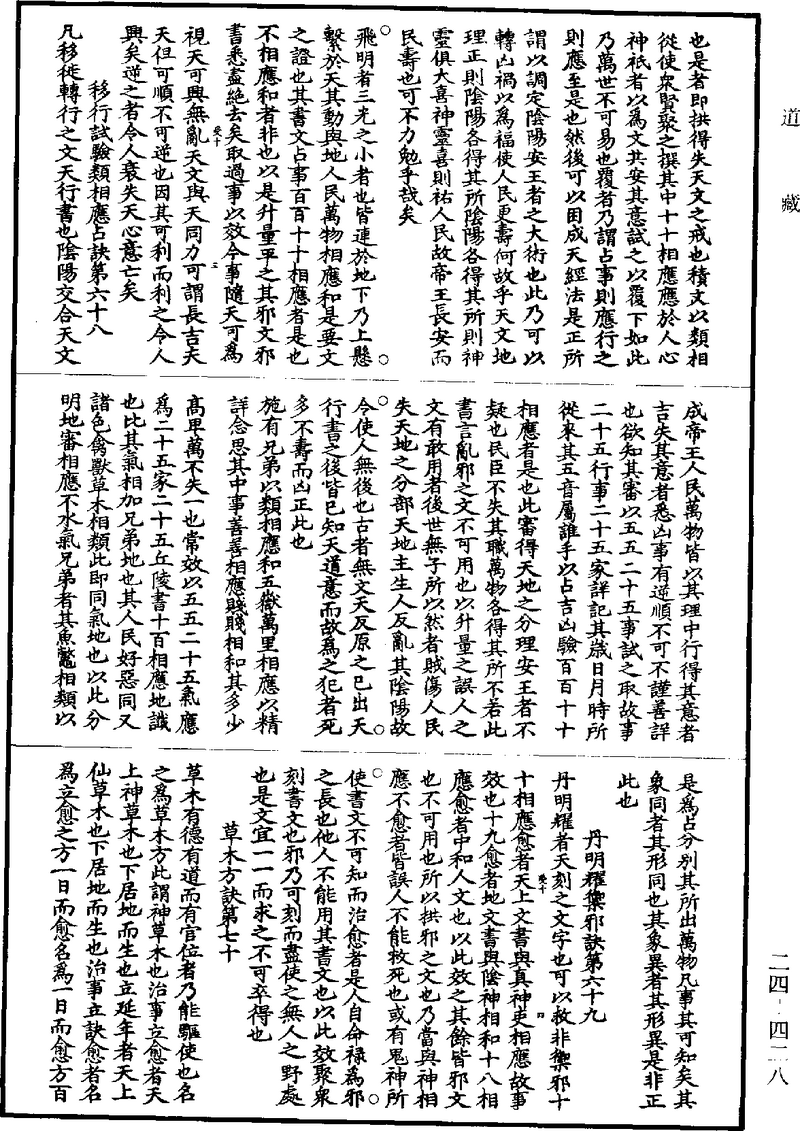 道藏
也是者即拱得失天文之戒也積文以類相
從使衆賢聚之撰其中十十相應應於人心
神祇者以爲文共安其意試之以覆下如此
乃萬世不可易也覆者乃謂占事則應行之
則應至是也然後可以困成天經法是正所
謂以調定陰陽安王者之大術也此乃可以
轉凶禍以爲福使人民更壽何故乎天文地
理正則陰陽各得其所陰陽各得其所則神
靈俱大喜神靈喜則祐人民故帝王長安而
民壽也可不力勉乎哉矣
飛明者三光之小者也皆連於地下乃上懸
繫於天其動與地人民萬物相應和是要文
之證也其書文占事百百十十相應者是也
不相應和者非也以是升量平之其邪文邪
書悉盡絶去矣取過事以效今事隨天可爲
視天可興無亂天文與天同力可謂長吉夫
天但可順不可逆也因其可利而利之令人
興矣逆之者令人衰失天心意亡矣
移行試驗類相應占訣第六十八
凡移徙轉行之文天行書也陰陽交合天文
成帝王人民萬物皆以其理中行得其意者
吉失其意者悉凶事有逆順不可不謹善詳
也欲知其審以五五二十五事試之取故事
二十五行事二十五家詳記其歲日月時所
從來其五音屬誰手以占吉凶驗百百十十
相應者是也此審得天地之分理安王者不
疑也民臣不失其職萬物各得其所不若此
書言亂邪之文不可用也以升量之誤人之
文有敢用者後世無子所以然者賊傷人民
失天地之分部天地主生人反亂其陰陽故
令使人無後也古者無文天反原之已出天
行書之後皆已知天道意而故爲之犯者死
多不壽而凶正此也
施有兄弟以類相應和五嶽萬里相應以精
詳念思其中事善善相應賤賤相和其多少
高卑萬不失一也常效以五五二十五氣應
爲二十五家二十五丘陵書十百相應地識
也比其氣相加兄弟地也其人民好惡同又
諸色禽獸草木相類此即同氣地也以此分
明地審相應不水氣兄弟者其魚鱉相類以
是爲占分別其所出萬物凡事其可知矣其
象同者其形同也其象異者其形異是非正
此也
丹明耀禦邪訣第六十九
丹明耀者天刻之文字也可以救非禦邪十
十相應愈者天上文書與真神吏相應故事
效也十九愈者地文書與陰神相和十八相
應愈者中和人文也以此效之其餘皆邪文
也不可用也所以拱邪之文也乃當與神相
應不愈者皆誤人不能救死也或有鬼神所
使書文不可知而治愈者是人自命祿爲邪
之長也他人不能用其書文也以此效聚衆
刻書文也邪乃可刻而盡使之無人之野處
也是文宜一一而求之不可卒得也
草木方訣第七十
草木有德有道而有官位者乃能驅使也名
之爲草木方此謂神草木也治事立愈者天
上神草木也下居地而生也立延年者天上
仙草木也下居地而生也治事立訣愈者名
爲立愈之方一日而愈名爲一日而愈方百
二四-四二八